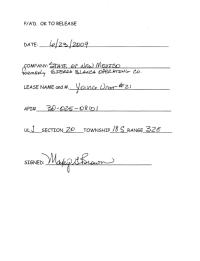 P/A'D. OK TO RELEASE
DATE: 6/23/2009
COMPANY: STATE OF NEW MEXICO
formerly SIERRA BLANCA OPERATING CO.
LEASE NAME and #. Young Unit #21
API# 30-025-08101
UL J SECTION 20 TOWNSHIP 18 S RANGE 32E
SIGNED: